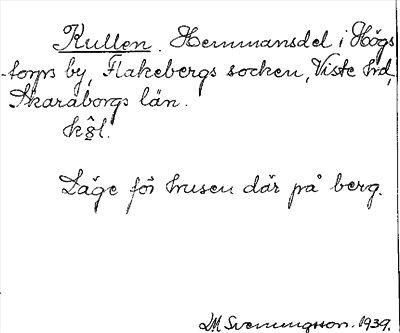 Kullen. Hemmansdel i Högs
torps by, Flakebergs socken, Viste hrd,
Skaraborgs län.
Läge för husen där på berg.
Svenungsson. 1939.